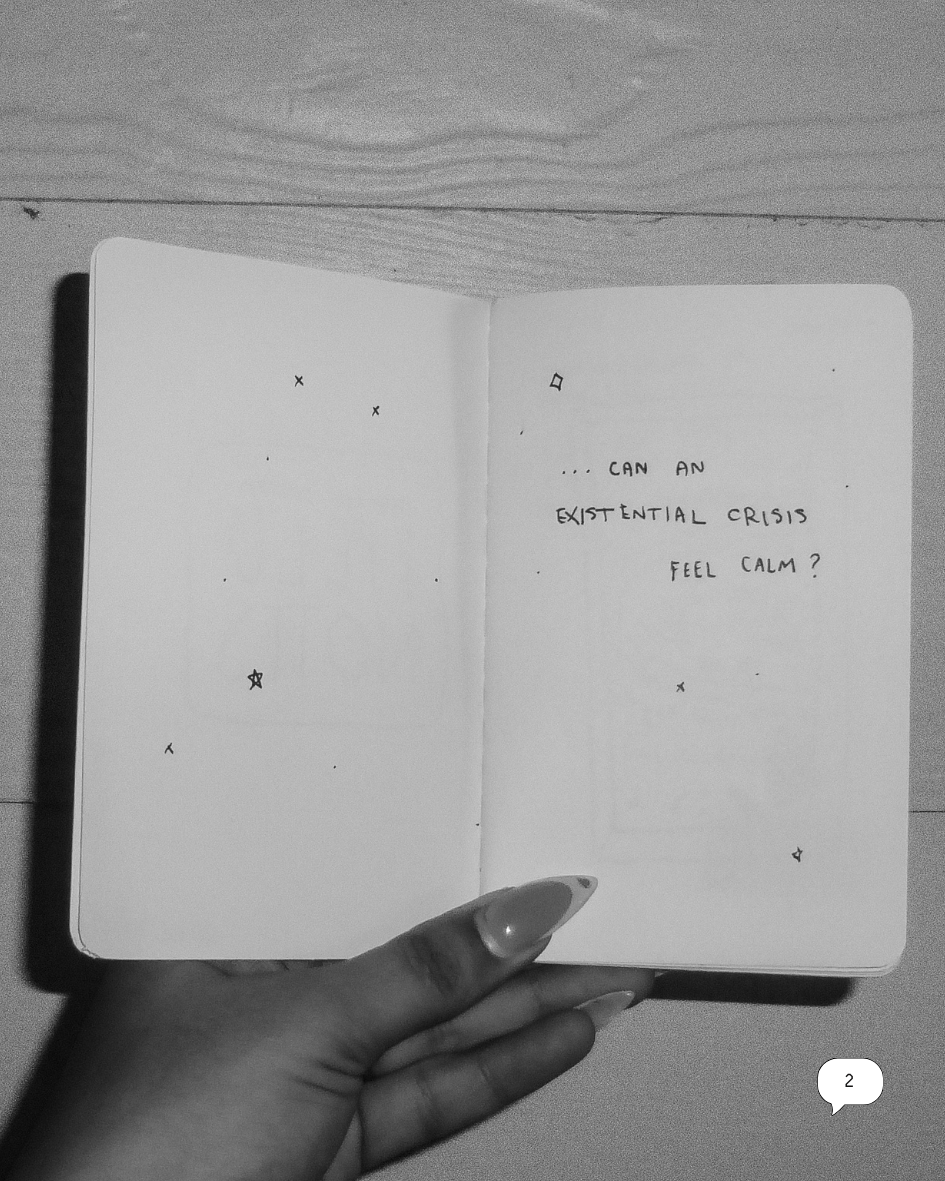 ... CAN AN
EXISTENTIAL CRISIS
FEEL CALM?
2